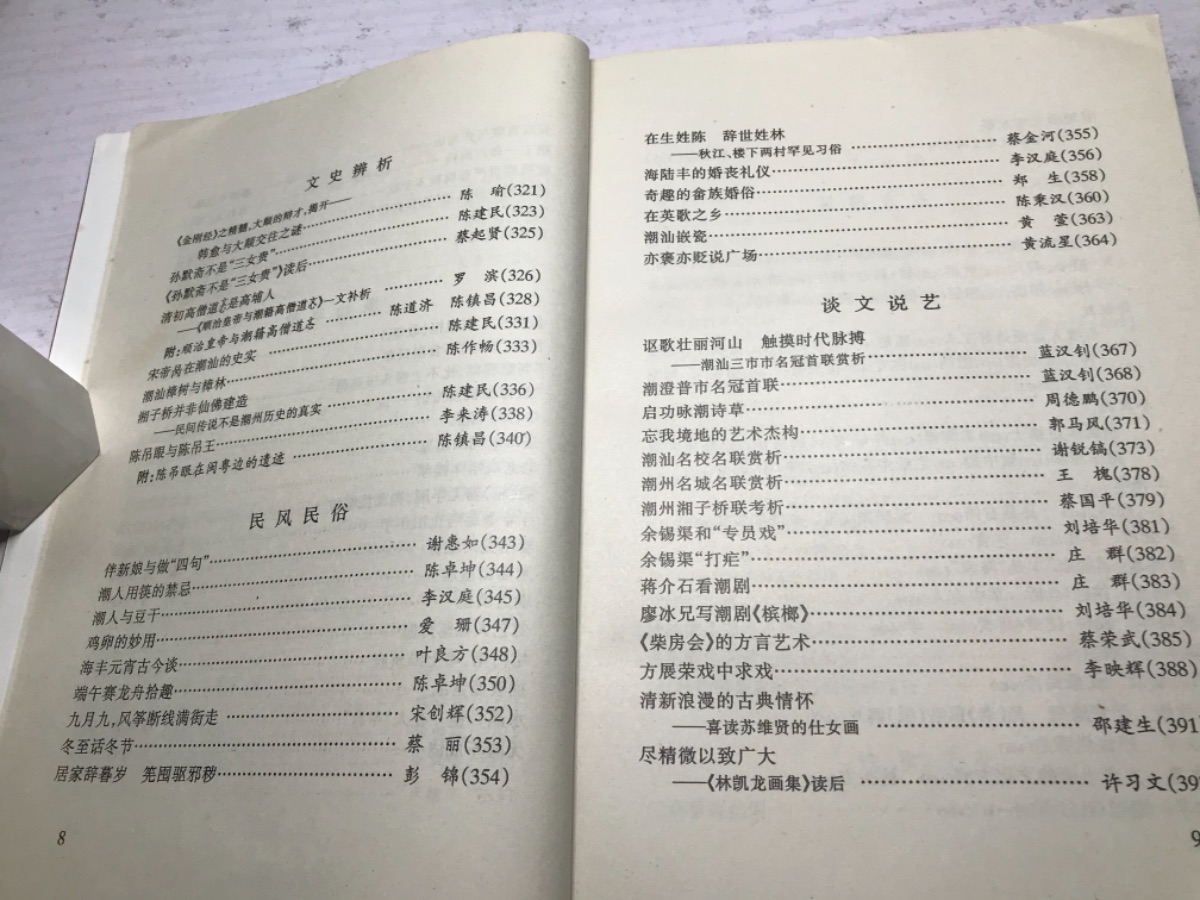 文史辨析
《金刚经》之精髓,大颠的辩才,揭开——
韩愈与大颠交往之谜……陈　瑜(321)
孙默斋不是“三女贵”……陈建民(323)
《孙默斋不是“三女贵”》读后……蔡起贤(325)
清初高僧道忞是高埔人
——《顺治皇帝与潮籍高僧道忞》一文补析……罗　滨(326)
附:顺治皇帝与潮籍高僧道忞……陈道济　陈镇昌(328)
宋帝昺在潮汕的史实……陈建民(331)
潮汕樟树与樟林……陈作畅(333)
湘子桥并非仙佛建造
——民间传说不是潮州历史的真实……陈建民(336)
陈吊眼与陈吊王……李来涛(338)
附:陈吊眼在闽粤边的遗迹……陈镇昌(340)
民风民俗
伴新娘与做“四句”……谢惠如(343)
潮人用筷的禁忌……陈卓坤(344)
潮人与豆干……李汉庭(345)
鸡卵的妙用……爱　珊(347)
海丰元宵古今谈……叶良方(348)
端午赛龙舟拾趣……陈卓坤(350)
九月九,风筝断线满街走……宋创辉(352)
冬至话冬节……蔡　丽(353)
居家辞暮岁　芫荽驱邪秽……彭　锦(354)
8
在生姓陈　辞世姓林
——秋江、楼下两村罕见习俗……蔡金河(355)
海陆丰的婚丧礼仪……李汉庭(356)
奇趣的畲族婚俗……郑　生(358)
在英歌之乡……陈秉汉(360)
潮汕嵌瓷……黄　萱(363)
亦褒亦贬说广场……黄流星(364)
谈文说艺
讴歌壮丽河山　触摸时代脉搏
——潮汕三市市名冠首联赏析……蓝汉钊(367)
潮澄普市名冠首联……蓝汉钊(368)
启功咏潮诗草……周德鹏(370)
忘我境地的艺术杰构……郭马风(371)
潮汕名校名联赏析……谢锐镐(373)
潮州名城名联赏析……王　槐(378)
潮州湘子桥联考析……蔡国平(379)
余锡渠和“专员戏”……刘培华(381)
余锡渠“打疟”……庄　群(382)
蒋介石看潮剧……庄　群(383)
廖冰兄写潮剧《槟榔》……刘培华(384)
《柴房会》的方言艺术……蔡荣武(385)
方展荣戏中求戏……李映辉(388)
清新浪漫的古典情怀
——喜读苏维贤的仕女画……邵建生(391)
尽精微以致广大
——《林凯龙画集》读后……许习文(39
9